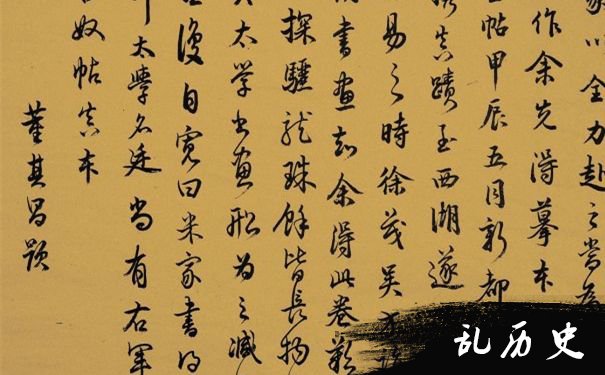 以全力赴之當為
作余先得摹本
帖甲辰五月新都
真蹟至西湖遂
易之時徐茂吳方
書畫知余得此卷歎
探驪龍珠餘皆長物
太学書畫船為之減
復自寬曰米家書得
太學名廷尚有右軍
奴帖真本
董其昌題
乱历史